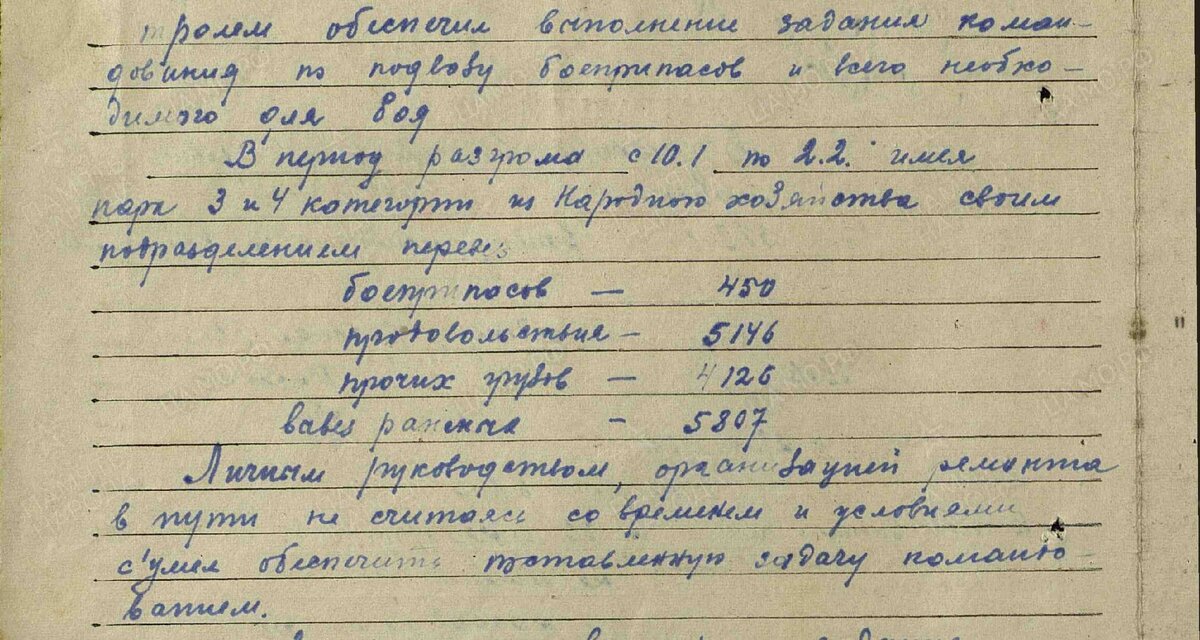 тролем обеспечил выполнение задания коман-
дования по подвозу боеприпасов и всего необхо-
димого для
В период разгрома с 10.1 по 2.2. имея
парк 3 и 4 категории из Народного хозяйства своим
подразделением перевез
боеприпасов — 450
продовольствия — 5146
прочих грузов — 4126
вывез раненых — 5807
Личным руководством, организацией ремонта
в пути не считаясь со временем и условиями
с'умел обеспечить поставленную задачу командо-
ванием.